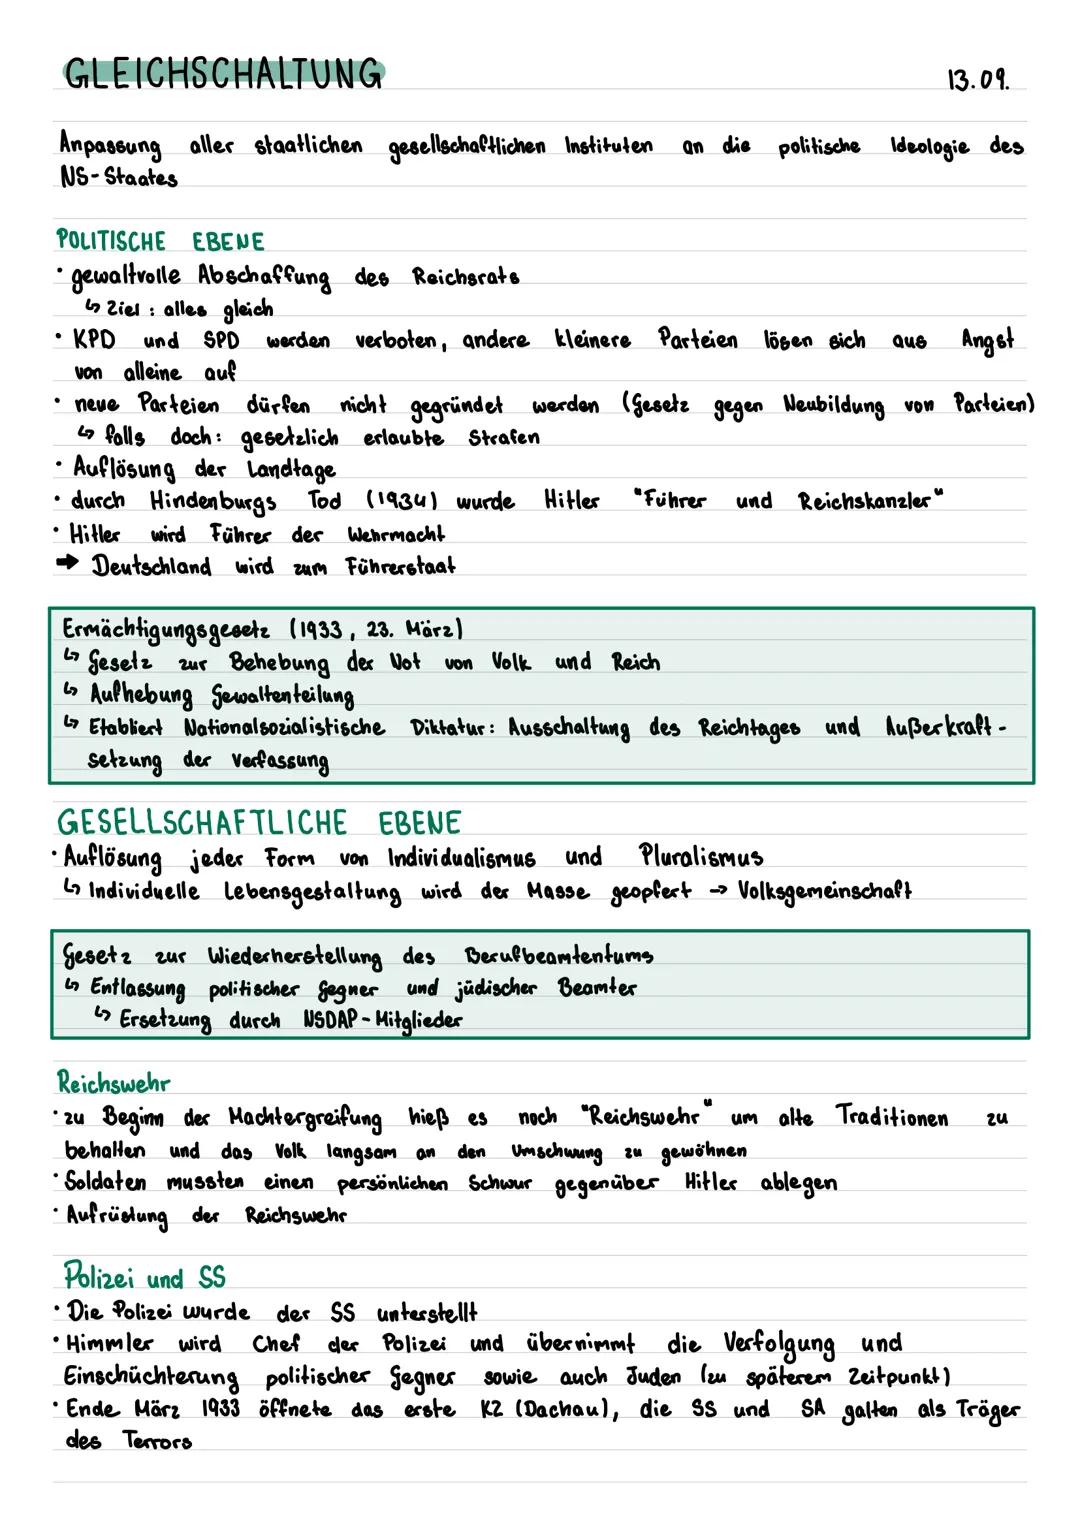 GLEICHSCHALTUNG
13.09.
Anpassung aller staatlichen gesellschaftlichen Instituten an die politische Ideologie des
NS-Staates
POLITISCHE EBENE
· gewaltvolle Abschaffung des Reichsrats
↳ Ziel : alles gleich
· KPD und SPD werden verboten, andere kleinere Parteien lösen sich aus Angst
von alleine auf
· neue Parteien dürfen nicht gegründet werden (Gesetz gegen Neubildung von Parteien)
↳ falls doch: gesetzlich erlaubte Strafen
· Auflösung der Landtage
· durch Hindenburgs Tod (1934) wurde Hitler "Führer und Reichskanzler"
· Hitler wird Führer der Wehrmacht
→ Deutschland wird zum Führerstaat
Ermächtigungsgesetz (1933, 23. März)
↳ Gesetz zur Behebung der Not von Volk und Reich
↳ Aufhebung Gewaltenteilung
↳ Etabliert Nationalsozialistische Diktatur: Ausschaltung des Reichtages und Außerkraft-
setzung der Verfassung
GESELLSCHAFTLICHE EBENE
· Auflösung jeder Form von Individualismus und Pluralismus
↳ Individuelle Lebensgestaltung wird der Masse geopfert → Volksgemeinschaft
Gesetz zur Wiederherstellung des Berufbeamtentums
↳ Entlassung politischer Gegner und jüdischer Beamter
↳ Ersetzung durch NSDAP-Mitglieder
Reichswehr
· zu Beginn der Machtergreifung hieß es noch "Reichswehr" um alte Traditionen zu
behalten und das Volk langsam an den Umschwung zu gewöhnen
· Soldaten mussten einen persönlichen Schwur gegenüber Hitler ablegen
· Aufrüstung der Reichswehr
Polizei und SS
· Die Polizei wurde der SS unterstellt
· Himmler wird Chef der Polizei und übernimmt die Verfolgung und
Einschüchterung politischer Gegner sowie auch Juden (zu späterem Zeitpunkt)
· Ende März 1933 öffnete das erste KZ (Dachau), die SS und SA galten als Träger
des Terrors